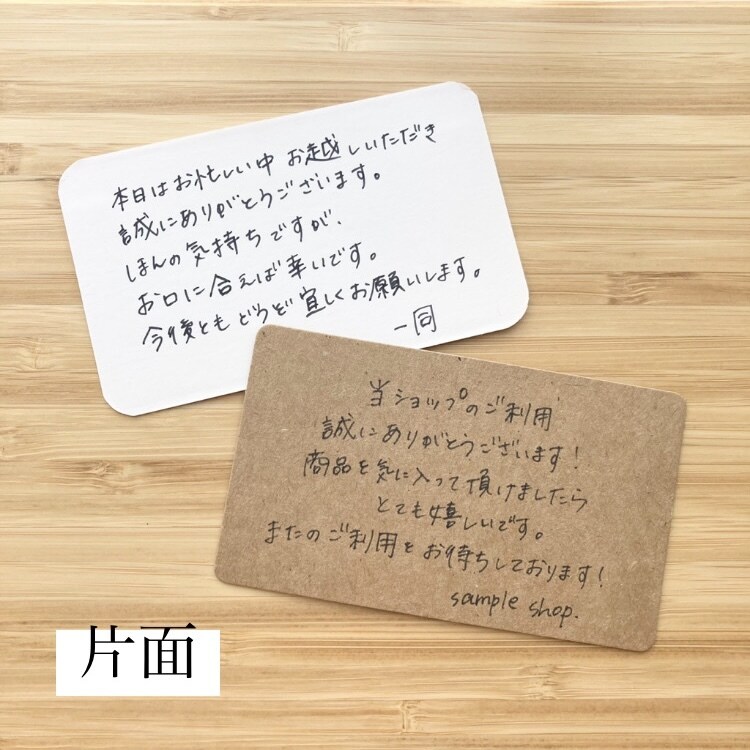 本日はお忙しい中 お越しいただき
誠にありがとうございます。
ほんの気持ちですが、
お口に合えば幸いです。
今後ともどうぞ宜しくお願いします。
一同
当ショップのご利用
誠にありがとうございます!
商品を気に入って頂けましたら
とても嬉しいです。
またのご利用をお待ちしております!
sample shop.
片面